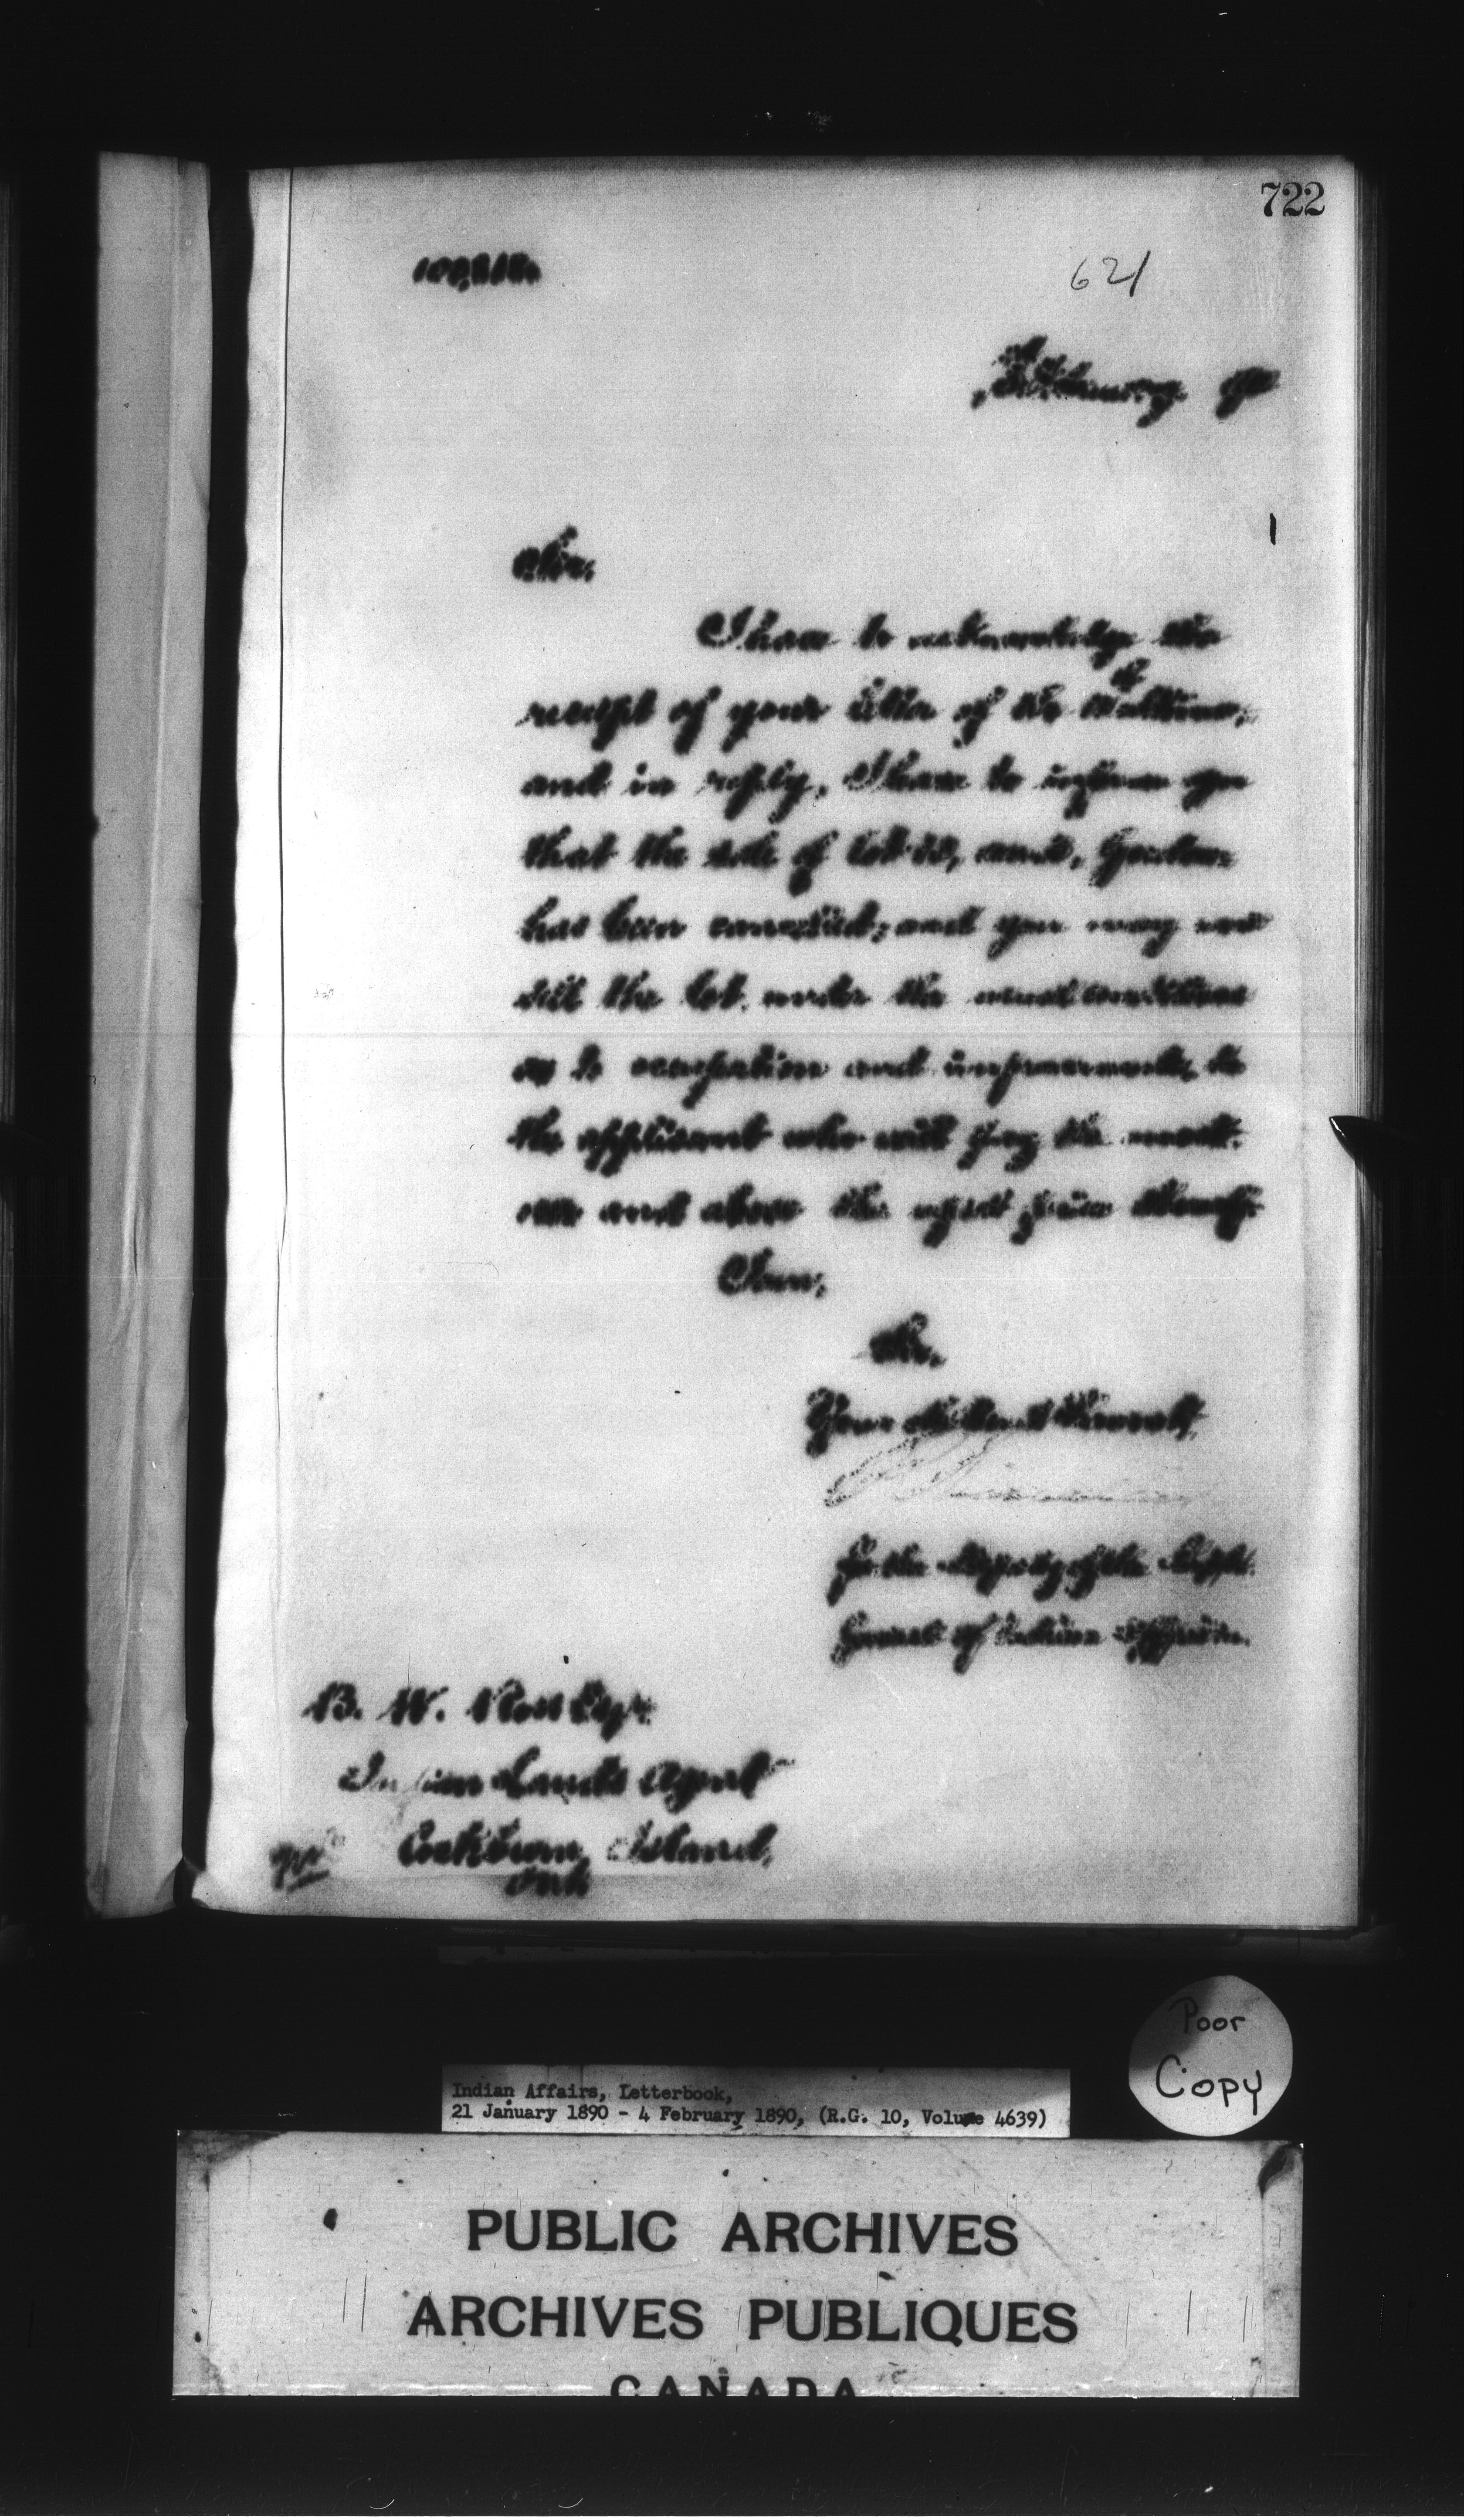 722
621
February 90
Sir,
I have to acknowledge the
receipt of your letter of the
and in reply, I have to inform you
that the sale of lot
has been cancelled; and you may now
sell the lot, under the usual conditions
as to occupation and improvements, to
the applicant who will pay the most
over and above the upset price thereof.
I am,
Sir,
Your obedient servant,
For the Deputy of the Supt.
General of Indian Affairs.
B. W. Ross Esqr.
Indian Lands Agent
Cockburn Island,
Ont.
Poor
Copy
Indian Affairs, Letterbook,
21 January 1890 - 4 February 1890, (R.G. 10, Volume 4639)
PUBLIC ARCHIVES
ARCHIVES PUBLIQUES
CANADA